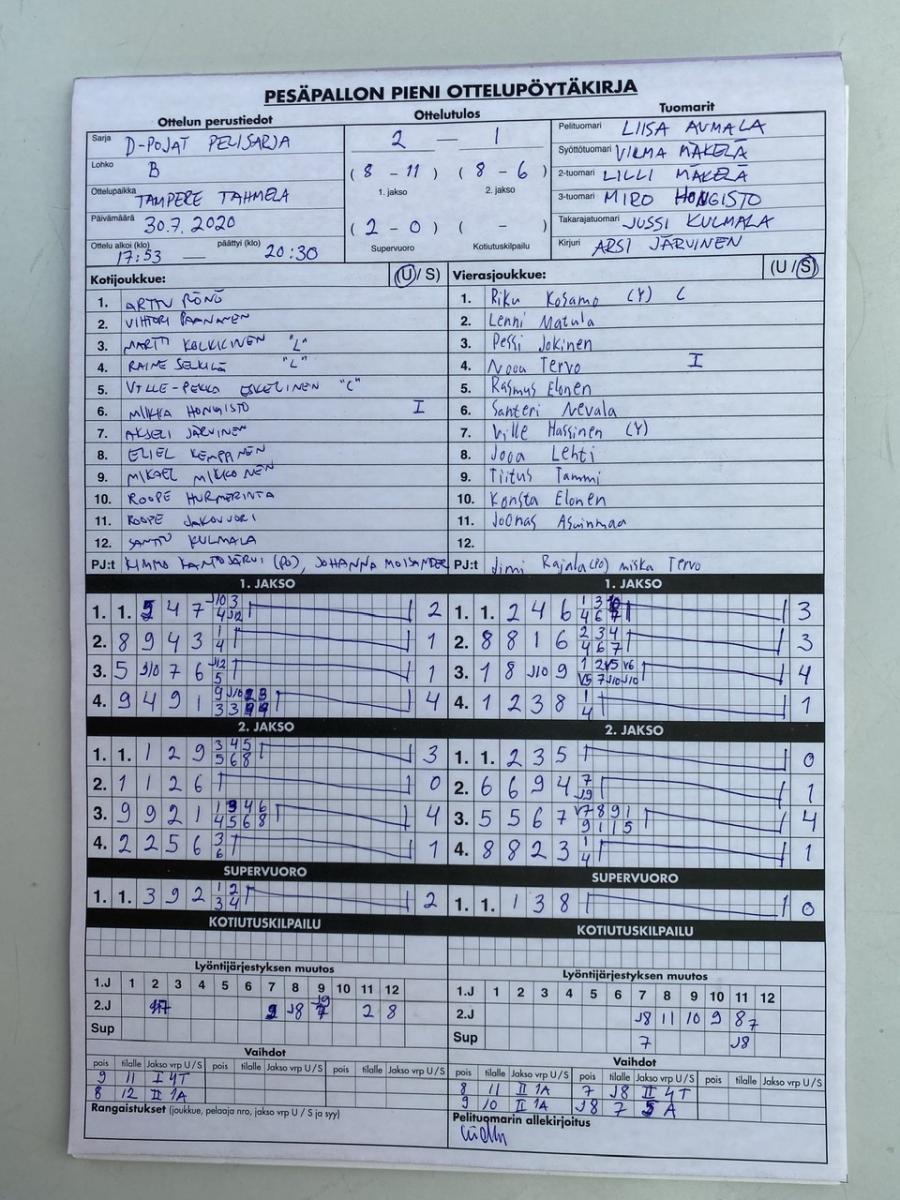 PESÄPALLON PIENI OTTELUPÖYTÄKIRJA
Ottelun perustiedot
Sarja D-POJAT PELISARJA
Lohko B
Ottelupaikka TAMPERE TAHMELA
Päivämäärä 30.7.2020
Ottelu alkoi (klo) päättyi (klo)
17:53 — 20:30
Ottelutulos
2 — 1
(8 - 11) (8 - 6)
1. jakso 2. jakso
(2 - 0) ( - )
Supervuoro Kotiutuskilpailu
Tuomarit
Pelituomari LIISA AUMALA
Syöttötuomari VILMA MÄKELÄ
2-tuomari LILLI MÄKELÄ
3-tuomari MIRO HONGISTO
Takarajatuomari JUSSI KULMALA
Kirjuri ARSI JÄRVINEN
Kotijoukkue: (U / S)
1. ARTTU RÖNÖ
2. VIHTORI PAANANEN
3. MARTTI KOLKKINEN "L"
4. RAINE SELKILÄ "L"
5. VILLE-PEKKA ESKELINEN "C"
6. MIIKKA HONGISTO I
7. AKSELI JÄRVINEN
8. ELIEL KEMPPINEN
9. MIKAEL MIKKONEN
10. ROOPE HURMERINTA
11. ROOPE JAKOVUORI
12. SANTTU KULMALA
PJ:t KIMMO KANTOJÄRVI (PO), JOHANNA MOISANDER
Vierasjoukkue: (U / S)
1. Riku Kosamo (Y) C
2. Lenni Matula
3. Pessi Jokinen
4. Nooa Tervo I
5. Rasmus Elonen
6. Santeri Nevala
7. Ville Hassinen (Y)
8. Jooa Lehti
9. Tiitus Tammi
10. Konsta Elonen
11. Joonas Asuinmaa
12.
PJ:t Jimi Rajala (PO) miska Tervo
1. JAKSO
1. 1. 2 4 7 2
2. 8 9 4 3 1
3. 5 J10 7 6 1
4. 9 4 9 1 4
2. JAKSO
1. 1. 1 2 9 3
2. 1 1 2 6 0
3. 9 9 2 1 4
4. 2 2 5 6 1
SUPERVUORO
1. 1. 3 9 2 2
KOTIUTUSKILPAILU
1. JAKSO
1. 1. 2 4 6 3
2. 8 8 1 6 3
3. 1 8 J10 9 4
4. 1 2 3 8 1
2. JAKSO
1. 1. 2 3 5 0
2. 6 6 9 4 1
3. 5 5 6 7 4
4. 8 8 2 3 1
SUPERVUORO
1. 1. 1 3 8 0
KOTIUTUSKILPAILU
Lyöntijärjestyksen muutos
1.J 1 2 3 4 5 6 7 8 9 10 11 12
2.J J8 2 8
Sup
Vaihdot
pois tilalle Jakso vrp U / S pois tilalle Jakso vrp U / S pois tilalle Jakso vrp U / S
9 11 I 4T
8 12 II 1A
Rangaistukset (joukkue, pelaaja nro, jakso vrp U / S ja syy)
Lyöntijärjestyksen muutos
1.J 1 2 3 4 5 6 7 8 9 10 11 12
2.J J8 11 10 9 8 7
Sup 7 J8
Vaihdot
pois tilalle Jakso vrp U / S pois tilalle Jakso vrp U / S pois tilalle Jakso vrp U / S
8 11 II 1A 7 J8 II 4T
9 10 II 1A J8 7 S A
Pelituomarin allekirjoitus